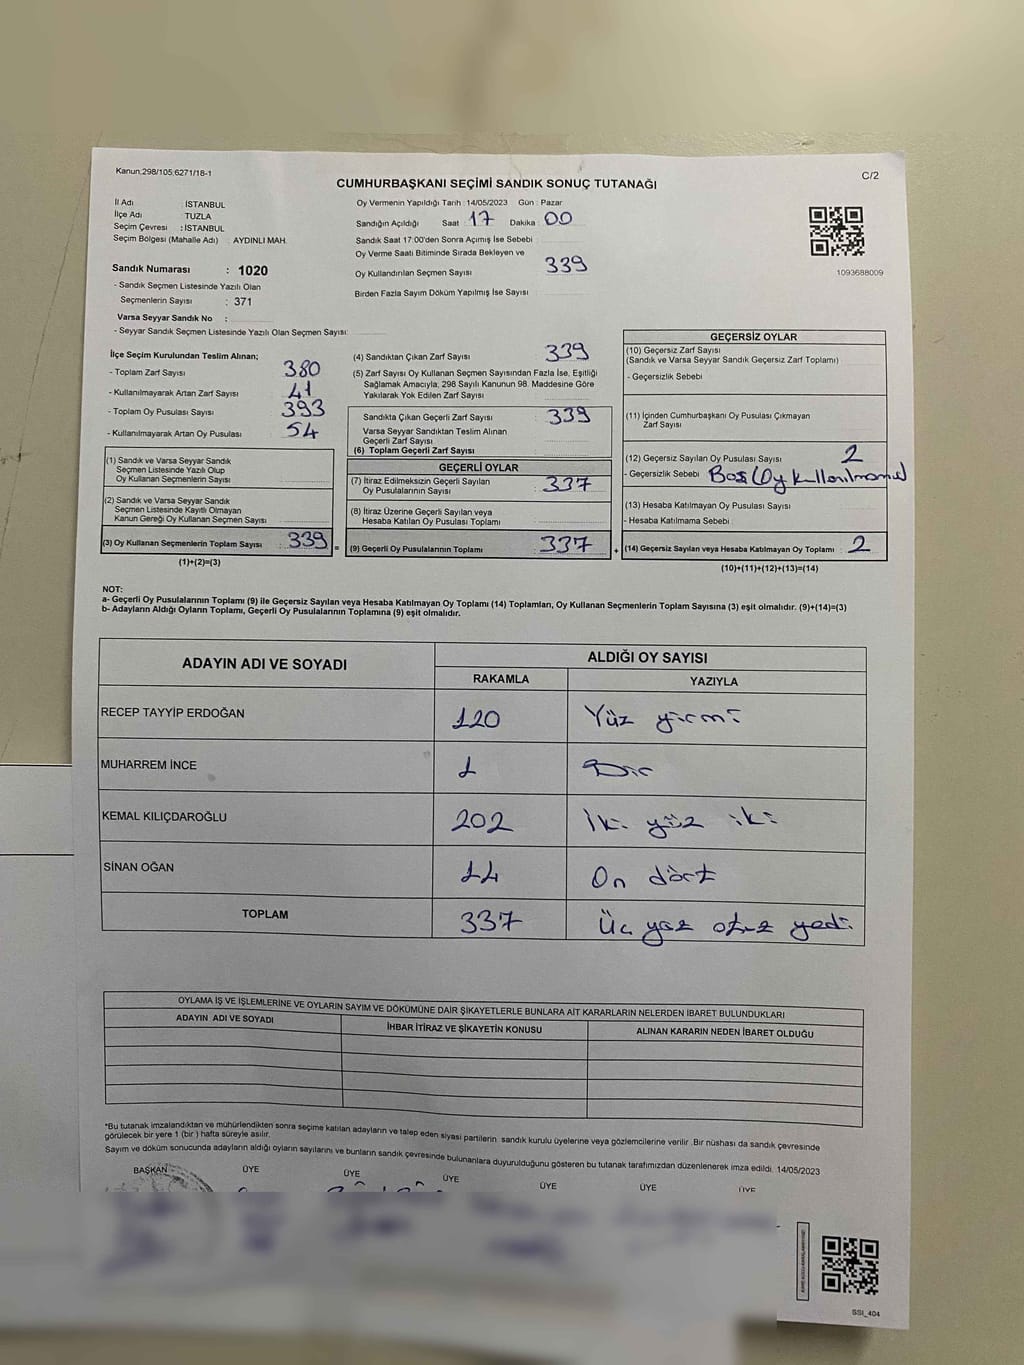 Kanun:298/105;6271/18-1
C/2
CUMHURBAŞKANI SEÇİMİ SANDIK SONUÇ TUTANAĞI
İl Adı : İSTANBUL
İlçe Adı : TUZLA
Seçim Çevresi : İSTANBUL
Seçim Bölgesi (Mahalle Adı) : AYDINLI MAH.
Sandık Numarası : 1020
- Sandık Seçmen Listesinde Yazılı Olan
Seçmenlerin Sayısı : 371
Varsa Seyyar Sandık No :
- Seyyar Sandık Seçmen Listesinde Yazılı Olan Seçmen Sayısı:
Oy Vermenin Yapıldığı Tarih : 14/05/2023 Gün : Pazar
Sandığın Açıldığı Saat : 17 Dakika : 00
Sandık Saat 17:00'den Sonra Açımış İse Sebebi
Oy Verme Saati Bitiminde Sırada Bekleyen ve
Oy Kullandırılan Seçmen Sayısı 339
Birden Fazla Sayım Döküm Yapılmış İse Sayısı
1093688009
İlçe Seçim Kurulundan Teslim Alınan;
- Toplam Zarf Sayısı 380
- Kullanılmayarak Artan Zarf Sayısı 41
- Toplam Oy Pusulası Sayısı 393
- Kullanılmayarak Artan Oy Pusulası 54
(1) Sandık ve Varsa Seyyar Sandık
Seçmen Listesinde Yazılı Olup
Oy Kullanan Seçmenlerin Sayısı
(2) Sandık ve Varsa Seyyar Sandık
Seçmen Listesinde Kayıtlı Olmayan
Kanun Gereği Oy Kullanan Seçmen Sayısı
(3) Oy Kullanan Seçmenlerin Toplam Sayısı : 339 =
(1)+(2)=(3)
(4) Sandıktan Çıkan Zarf Sayısı 339
(5) Zarf Sayısı Oy Kullanan Seçmen Sayısından Fazla İse, Eşitliği
Sağlamak Amacıyla, 298 Sayılı Kanunun 98. Maddesine Göre
Yakılarak Yok Edilen Zarf Sayısı
Sandıkta Çıkan Geçerli Zarf Sayısı : 339
Varsa Seyyar Sandıktan Teslim Alınan
Geçerli Zarf Sayısı
(6) Toplam Geçerli Zarf Sayısı
GEÇERLİ OYLAR
(7) İtiraz Edilmeksizin Geçerli Sayılan
Oy Pusulalarının Sayısı : 337
(8) İtiraz Üzerine Geçerli Sayılan veya
Hesaba Katılan Oy Pusulası Toplamı
(9) Geçerli Oy Pusulalarının Toplamı : 337 +
GEÇERSİZ OYLAR
(10) Geçersiz Zarf Sayısı
(Sandık ve Varsa Seyyar Sandık Geçersiz Zarf Toplamı)
- Geçersizlik Sebebi
(11) İçinden Cumhurbaşkanı Oy Pusulası Çıkmayan
Zarf Sayısı
(12) Geçersiz Sayılan Oy Pusulası Sayısı 2
- Geçersizlik Sebebi Boş (Oy kullanılmamış)
(13) Hesaba Katılmayan Oy Pusulası Sayısı
- Hesaba Katılmama Sebebi
(14) Geçersiz Sayılan veya Hesaba Katılmayan Oy Toplamı : 2
(10)+(11)+(12)+(13)=(14)
NOT:
a- Geçerli Oy Pusulalarının Toplamı (9) ile Geçersiz Sayılan veya Hesaba Katılmayan Oy Toplamı (14) Toplamları, Oy Kullanan Seçmenlerin Toplam Sayısına (3) eşit olmalıdır. (9)+(14)=(3)
b- Adayların Aldığı Oyların Toplamı, Geçerli Oy Pusulalarının Toplamına (9) eşit olmalıdır.
ADAYIN ADI VE SOYADI
ALDIĞI OY SAYISI
RAKAMLA YAZIYLA
RECEP TAYYİP ERDOĞAN 120 Yüz yirmi
MUHARREM İNCE 1 Bir
KEMAL KILIÇDAROĞLU 202 İki yüz iki
SİNAN OĞAN 14 On dört
TOPLAM 337 Üç yüz otuz yedi
OYLAMA İŞ VE İŞLEMLERİNE VE OYLARIN SAYIM VE DÖKÜMÜNE DAİR ŞİKAYETLERLE BUNLARA AİT KARARLARIN NELERDEN İBARET BULUNDUKLARI
ADAYIN ADI VE SOYADI İHBAR İTİRAZ VE ŞİKAYETİN KONUSU ALINAN KARARIN NEDEN İBARET OLDUĞU
*Bu tutanak imzalandıktan ve mühürlendikten sonra seçime katılan adayların ve talep eden siyasi partilerin sandık kurulu üyelerine veya gözlemcilerine verilir .Bir nüshası da sandık çevresinde
görülecek bir yere 1 (bir ) hafta süreyle asılır.
Sayım ve döküm sonucunda adayların aldığı oyların sayılarını ve bunların sandık çevresinde bulunanlara duyurulduğunu gösteren bu tutanak tarafımızdan düzenlenerek imza edildi. 14/05/2023
BAŞKAN ÜYE ÜYE ÜYE ÜYE ÜYE ÜYE
SSI_404